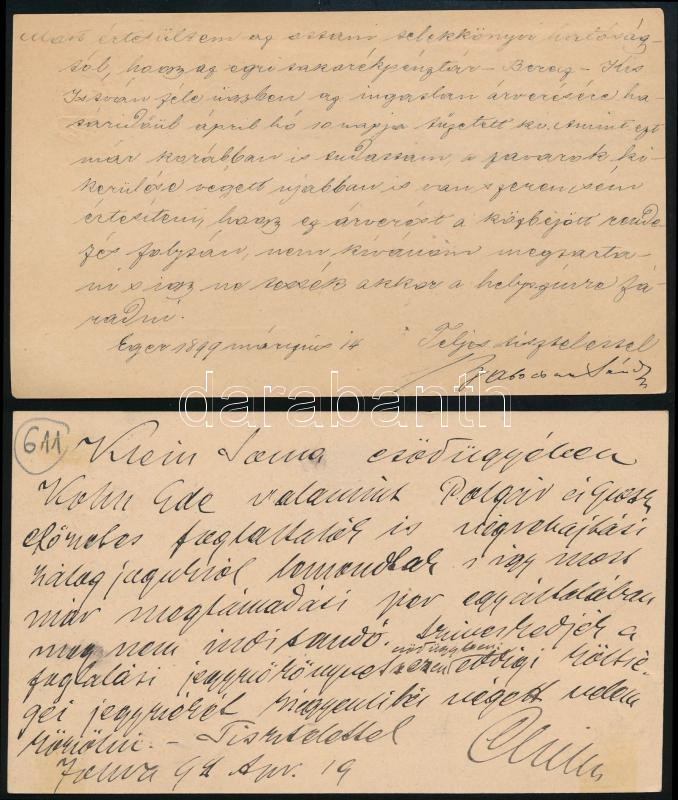 Most értesültem az ottani telekkönyvi hatóság-
tól, hogy az egri takarékpénztár – Bereg – Kis
István féle ügyben az ingatlan árverésére ha-
táridőül április hó 10 napja tűzetett ki. Amint ezt
már korábban is tudattam, a zavarok ki-
kerülése végett ujabban is van szerencsém
értesíteni, hogy ez árverést a közbejött rende-
zés folytán, nem kívánom megtarta-
ni s így ne tessék akkor a helyszínre fá-
radni.
Eger 1899 márczius 14 Teljes tisztelettel
darabanth
611
Klein Soma csődügyében
Kohn Ede valamint Polgár és
előzetes foglaltatók is végrehajtási
zálogjogukról lemondtak s így most
már megtámadási per egyáltalában
meg nem inditandó. Sziveskedjék a
foglalási jegyzőkönyvet s ezen eddigi költsé-
gei jegyzékét kiegyenlítés végett velem
közölni. – Tisztelettel
94 Apr. 19